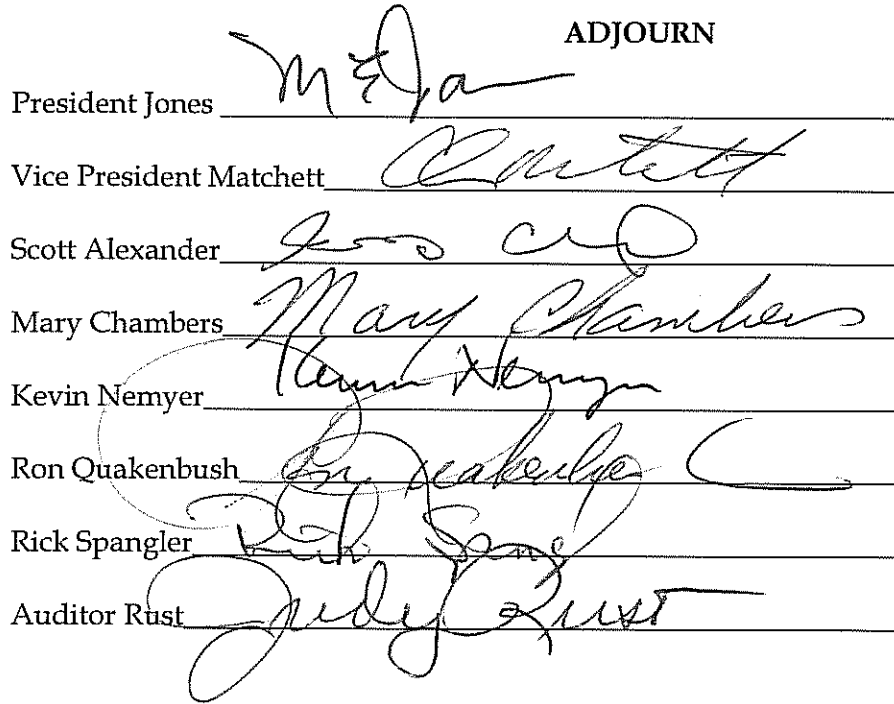 ADJOURN
President Jones
Vice President Matchett
Scott Alexander
Mary Chambers Mary Chambers
Kevin Nemyer Kevin Nemyer
Ron Quakenbush Ron Quakenbush
Rick Spangler Rick
Auditor Rust Judy Rust